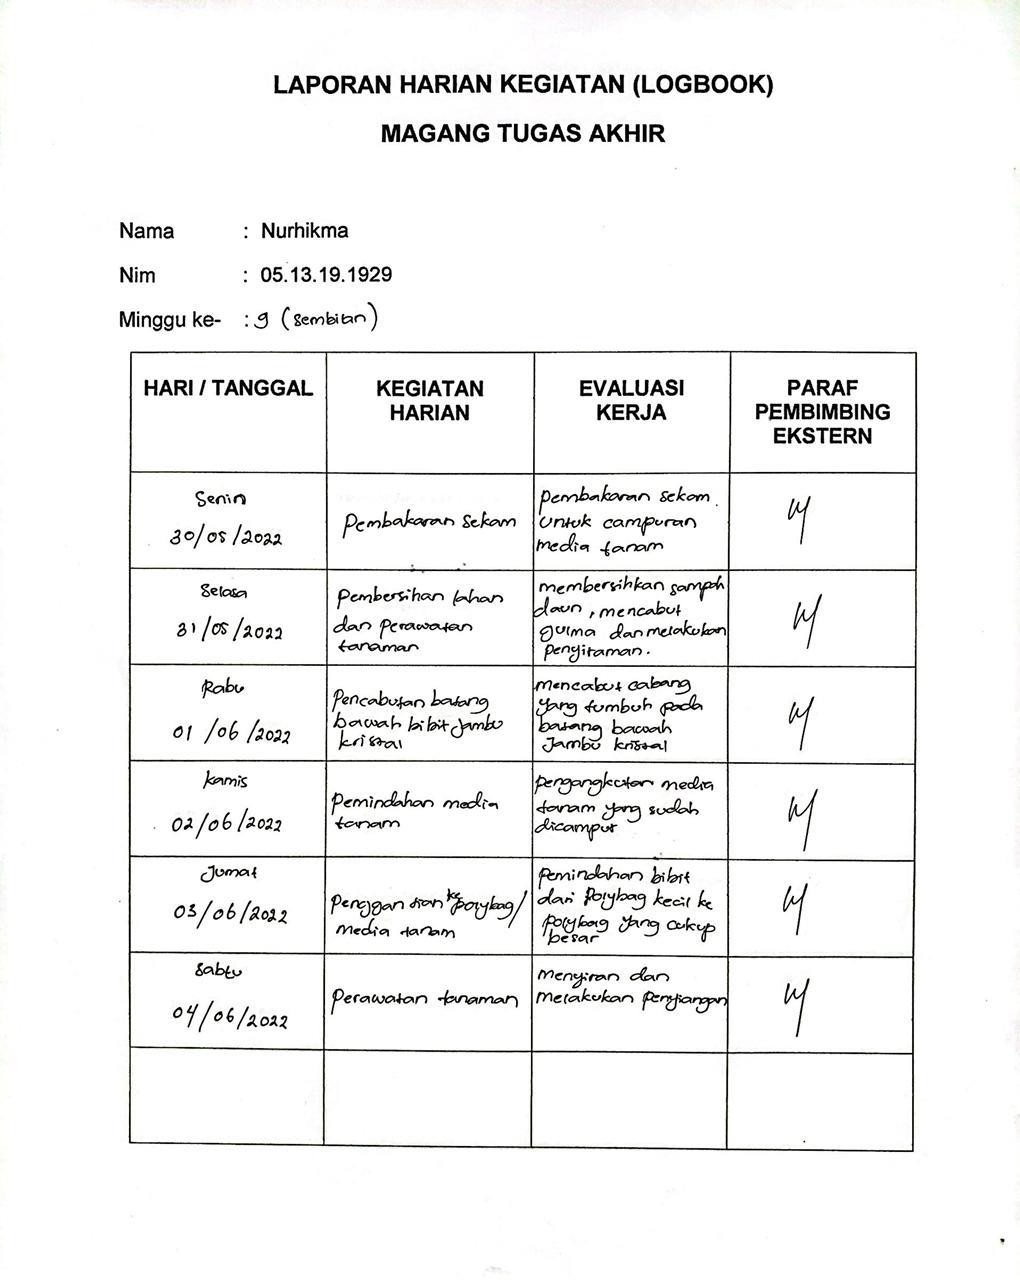 LAPORAN HARIAN KEGIATAN (LOGBOOK)
MAGANG TUGAS AKHIR
Nama : Nurhikma
Nim : 05.13.19.1929
Minggu ke- : 9 (Sembilan)
HARI / TANGGAL
KEGIATAN
HARIAN
EVALUASI
KERJA
PARAF
PEMBIMBING
EKSTERN
Senin
30/05/2022
Pembakaran Sekam
Pembakaran Sekam
Untuk campuran
media tanam
Selasa
31/05/2022
Pembersihan lahan
dan Perawatan
tanaman
membersihkan sampah
daun, mencabut
gulma dan melakukan
Penyiraman.
Rabu
01/06/2022
Pencabutan batang
bawah bibit Jambu
kristal
mencabut cabang
yang tumbuh pada
batang bawah
Jambu kristal
Kamis
02/06/2022
Pemindahan media
tanam
pengangkutan media
tanam yang sudah
dicampur
Jumat
03/06/2022
ke polybag/
media tanam
Pemindahan bibit
dari Polybag kecil ke
Polybag yang cukup
besar
Sabtu
04/06/2022
Perawatan tanaman
Menyiran dan
Melakukan Penyiangan